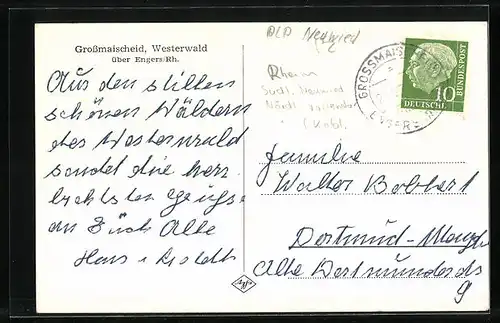 Großmaischeid, Westerwald
über Engers/Rh.
Aus den stillen
schönen Wäldern
des Westerwald
sendet die herz-
lichsten Grüße
an Euch Alle
Hans u.
DLD Neuwied
Rhein
Südl. Neuwied
Nördl.
(Kobl.
GROSSMAISCHEID
DEUTSCHE BUNDESPOST
10
Familie
Walter Bobbert
Dortmund-
Alte Dortmunderstr
9